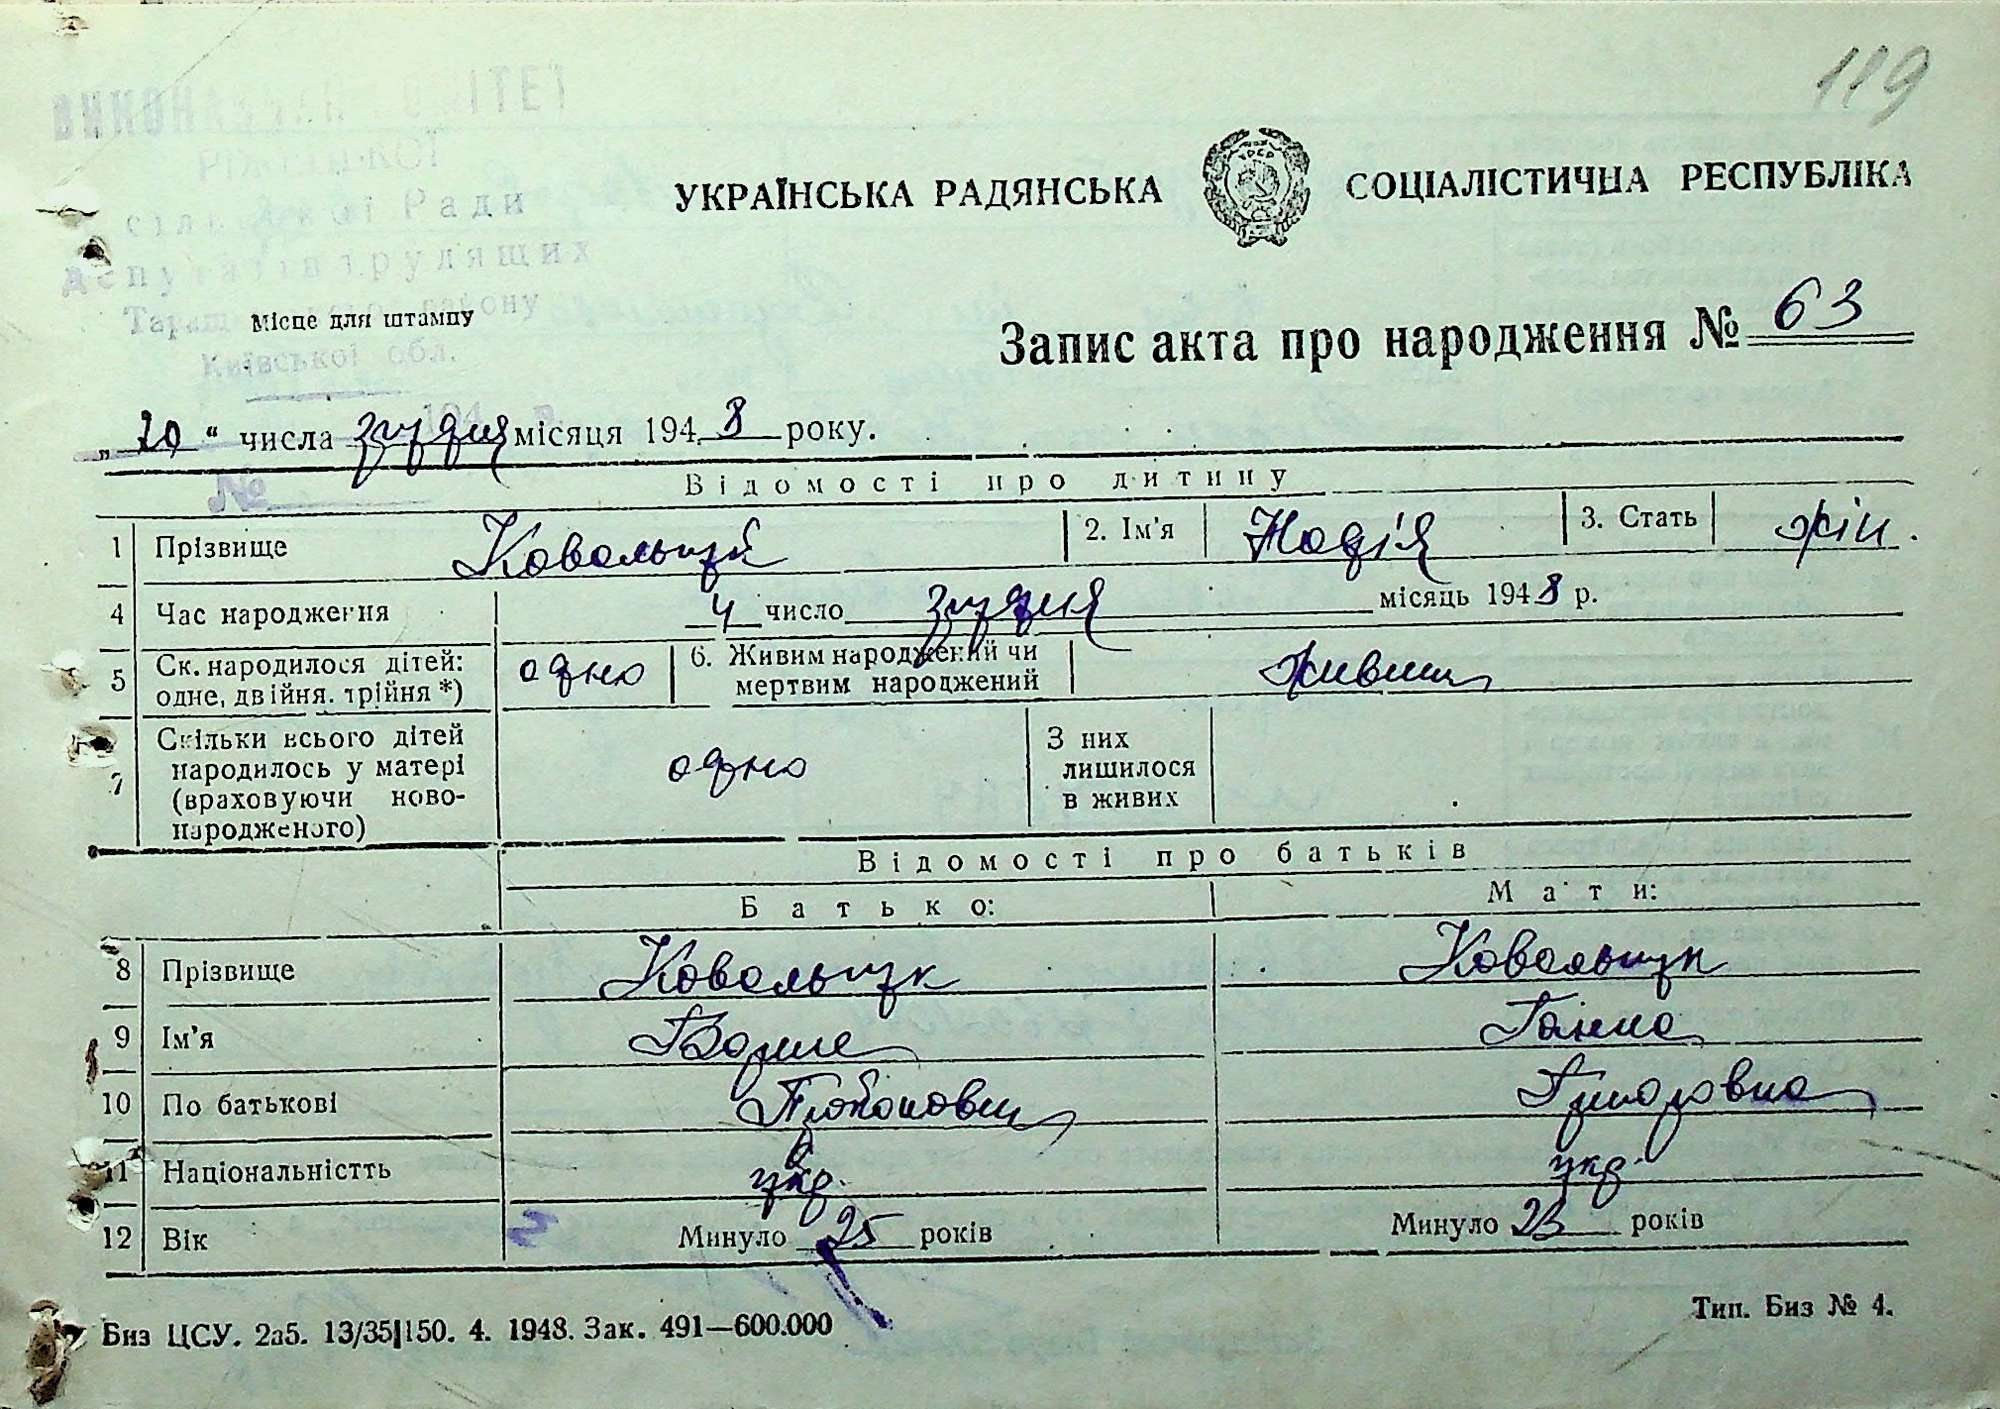 119
ВИКОНАВЧИЙ КОМІТЕТ
сільської Ради
депутатів трудящих
Таращанського району
Київської обл.
194 р.
№
Місце для штампу
УКРАЇНСЬКА РАДЯНСЬКА СОЦІАЛІСТИЧНА РЕСПУБЛІКА
УРСР
Запис акта про народження № 63
„20“ числа грудня місяця 1948 року.
Відомості про дитину
1 Прізвище Ковальчук 2. Ім’я Надія 3. Стать жін.
4 Час народження 4 число грудня місяць 1948 р.
5 Ск. народилося дітей: одно 6. Живим народжений чи живим
одне, двійня. трійня *) мертвим народжений
7 Скільки всього дітей народилось у матері (враховуючи ново-народженого) одно З них лишилося в живих
Відомості про батьків
Батько: Мати:
8 Прізвище Ковальчук Ковальчук
9 Ім’я Ганна
10 По батькові Григоровна
11 Національністть укр. укр.
12 Вік Минуло 25 років Минуло 23 років
Биз ЦСУ. 2а5. 13/35|150. 4. 1948. Зак. 491—600.000
Тип. Биз № 4.